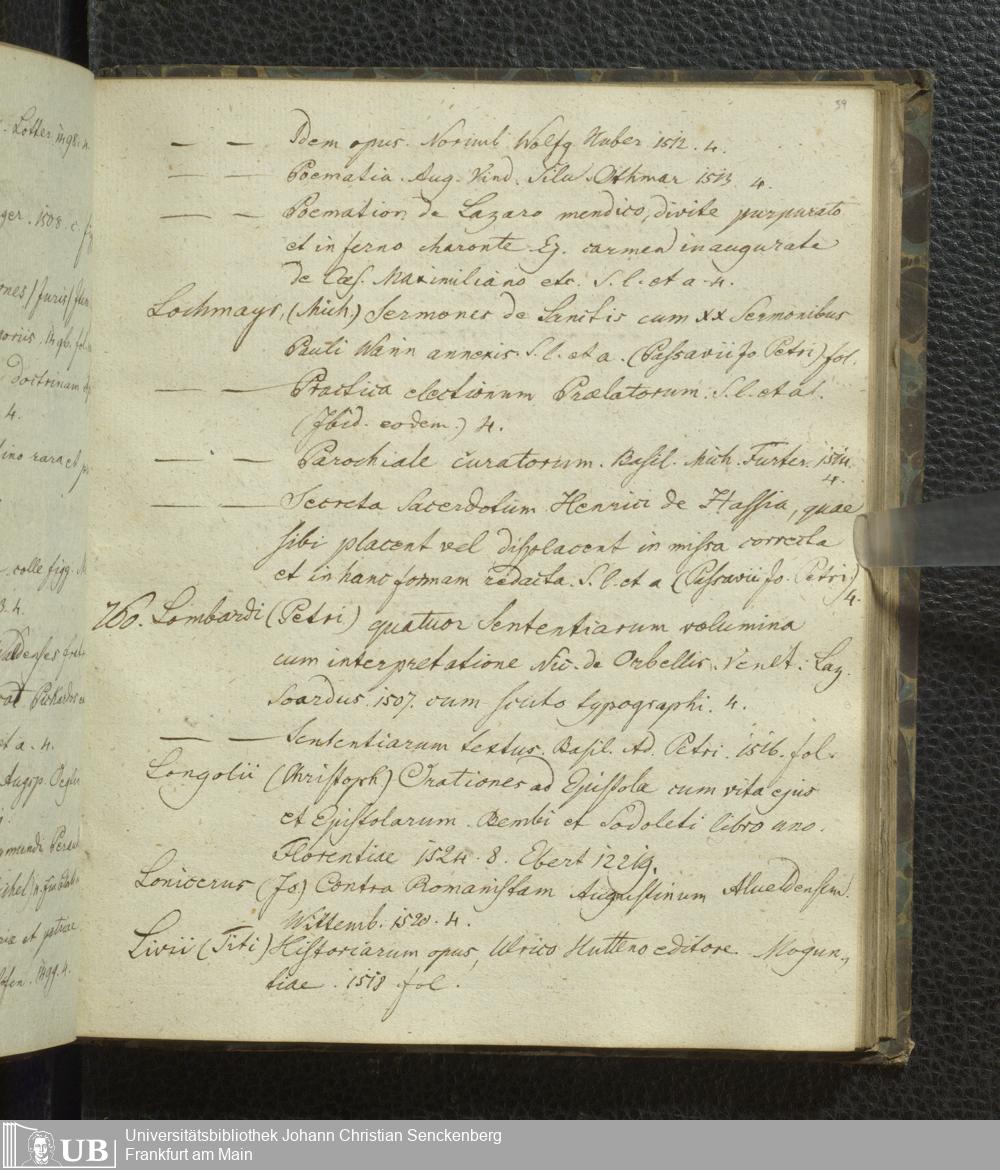 39
— — Idem opus. Norimb. Wolfg. Huber 1512. 4.
— — Poematia. Aug. Vind. Silv. Othmar 1513. 4.
— — Poemation de Lazaro mendico, divite purpurato
et inferno charonte. Ej. carmen inaugurate
de Cæs. Maximiliano etc. S. l. et a. 4.
Lochmayr, (Mich.) Sermones de Sanctis cum XX Sermonibus
Pauli Wann annexis. S. l. et a. (Passavii Jo Petri) fol.
— — Practica electionum Prælatorum. S. l. et a.
(Ibid. eodem.) 4.
— — Parochiale curatorum. Basil. Mich. Furter. 1514.
4.
— — Secreta Sacerdotum Henrici de Hassia, quae
sibi placent vel displacent in missa correcta
et in hanc formam redacta. S. l. et a (Passavii Jo. Petri)
4.
760. Lombardi (Petri) quatuor Sententiarum volumina
cum interpretatione Nic. de Orbellis. Venet. Laz.
Soardus. 1507. cum scuto typographi. 4.
— — Sententiarum textus. Basil. Ad. Petri. 1516. fol.
Longolii (Christoph) Orationes ad Epistola cum vita ejus
et Epistolarum Bembi et Sadoleti libro uno.
Florentiae 1524. 8. Ebert 12219.
Lonicerus (Jo) Contra Romanistam Augustinum Alveldensem.
Wittemb. 1520. 4.
Livii (Titi) Historiarum opus, Ulrico Hutteno editore. Mogun-
tiae. 1518 fol.
Lotter. 1498. 4.
1508. c.
doctrinam
4.
rara et
colle figg.
4.
Pickardos
et a. 4.
et patriae
1499. 4.
UB
Universitätsbibliothek Johann Christian Senckenberg
Frankfurt am Main